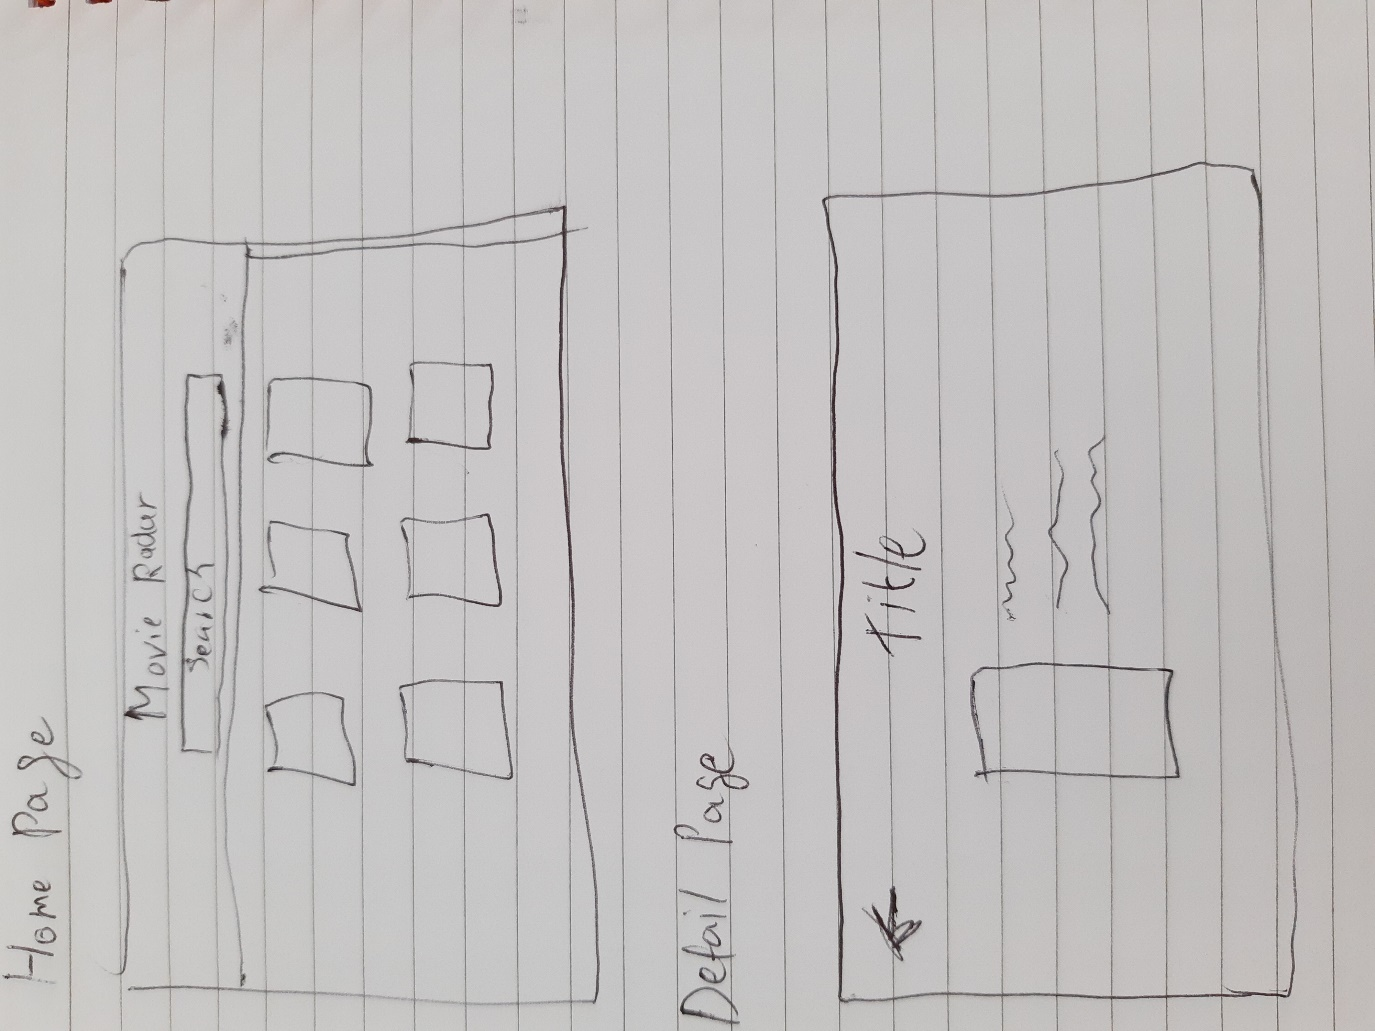 Home Page
Movie Radar
Search
Detail Page
Title